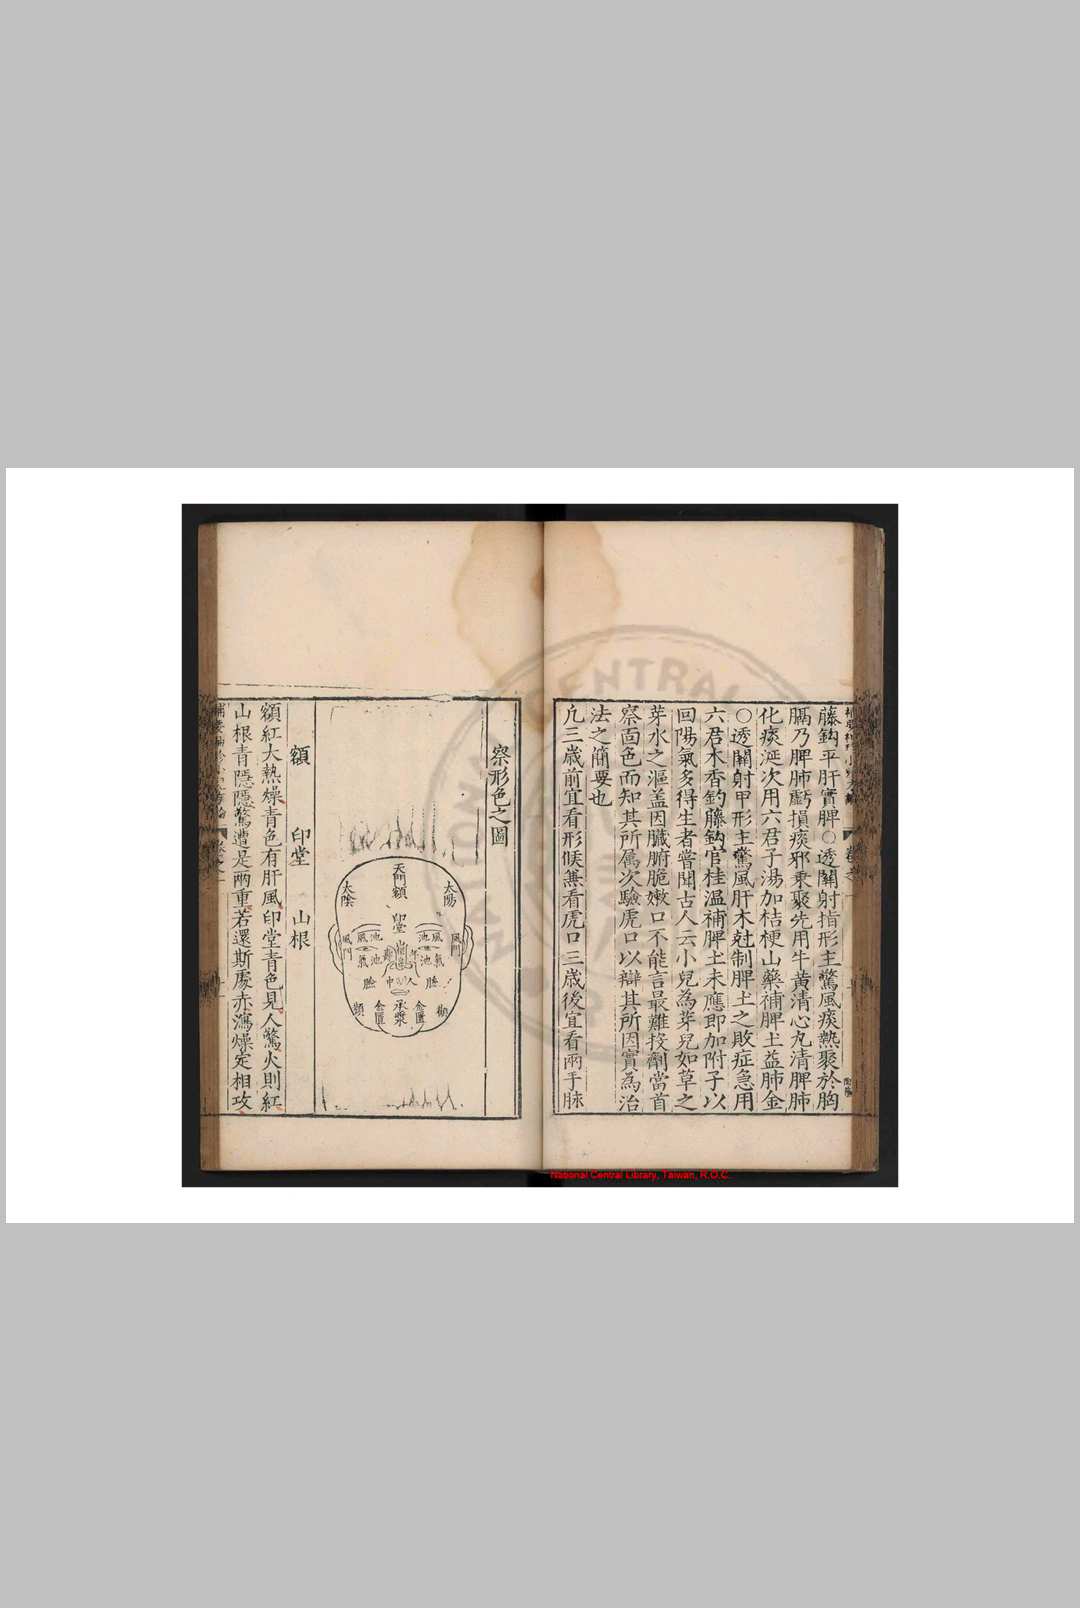 藤鈎平肝實脾○透關射指形主驚風痰熱聚於胸
膈乃脾肺虧損痰邪乗聚先用牛黄清心丸清脾肺
化痰涎次用六君子湯加桔梗山藥補脾土益肺金
○透關射甲形主驚風肝木尅制脾土之敗症急用
六君木香釣藤鈎官桂温補脾土未應即加附子以
回陽氣多得生者嘗聞古人云小兒為芽兒如草之
芽水之漚盖因臟腑脆嫩口不能言最難投劑當首
察靣色而知其所属次驗虎口以辯其所因實為治
法之簡要也
凢三歲前宜看形候無看虎口三歲後宜看兩手脉
察形色之圖
天門
額
太陽
太陰
印堂
風池
風池
風門
風門
氣池
氣池
山根
年
臉
人中
臉
承漿
金匱
金匱
頰
額 印堂 山根
額紅大熱燥青色有肝風印堂青色見人驚火則紅
山根青隱隱驚遭是兩重若還斯處赤瀉燥定相攻
National Central Library, Taiwan, R.O.C.